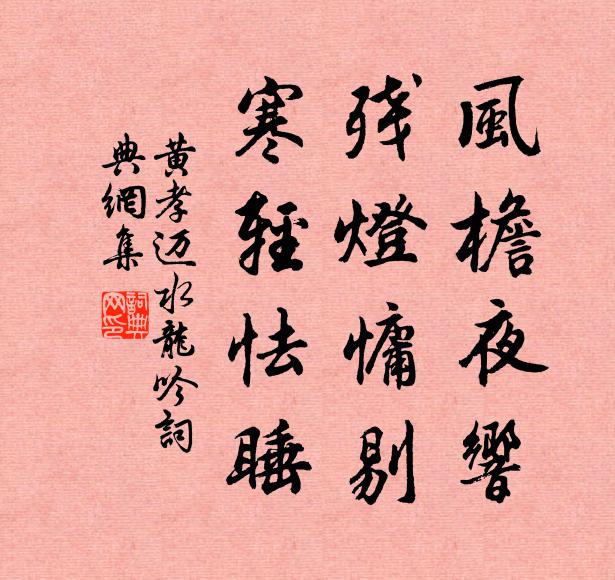 風檐夜響
残燈慵剔
寒輕怯睡
黃孝迈水龍吟詞
典網集
詞典
网印